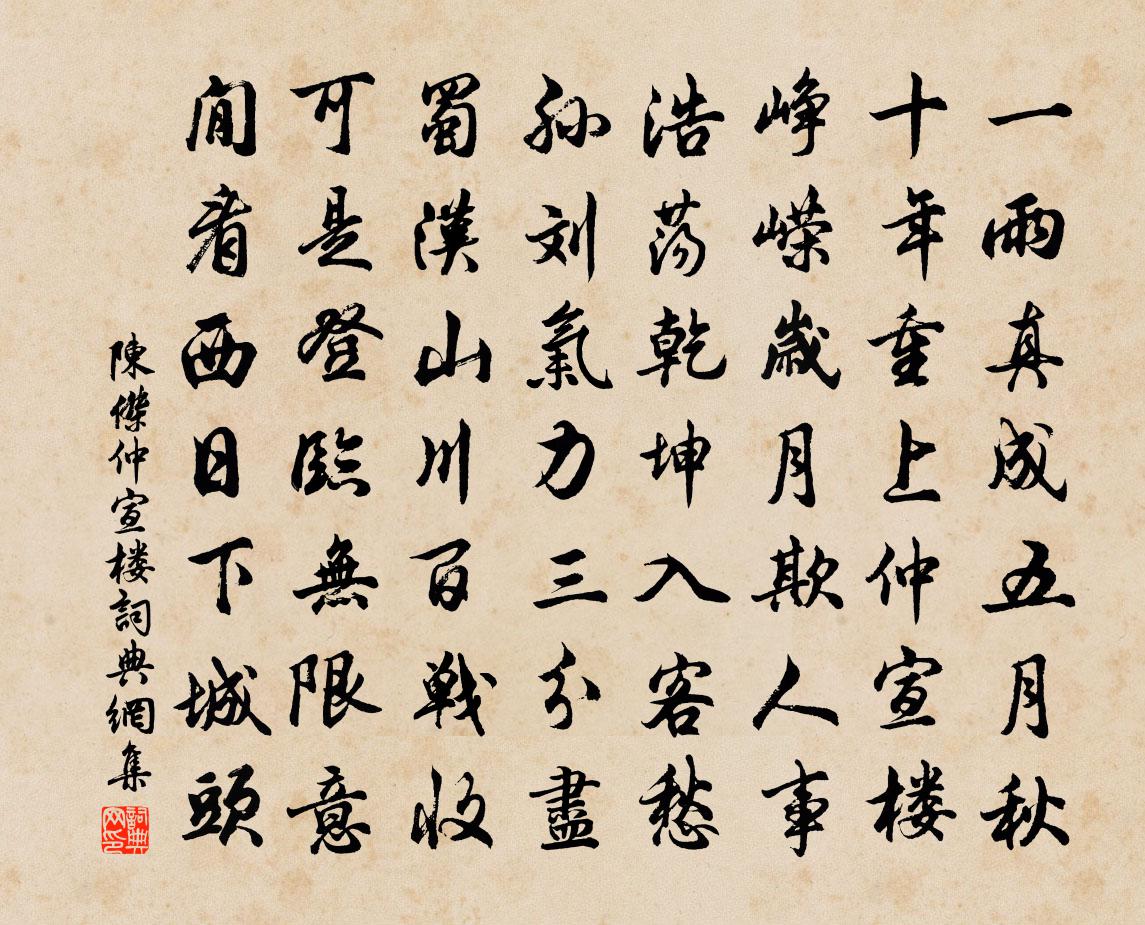 一雨真成五月秋
十年重上仲宣楼
峥嵘歲月欺人事
浩荡乾坤入客愁
孙刘氣力三分盡
蜀漢山川百戦收
可是登臨無限意
閒看西日下城頭
陳傑仲宣楼詞典網集
詞典網印